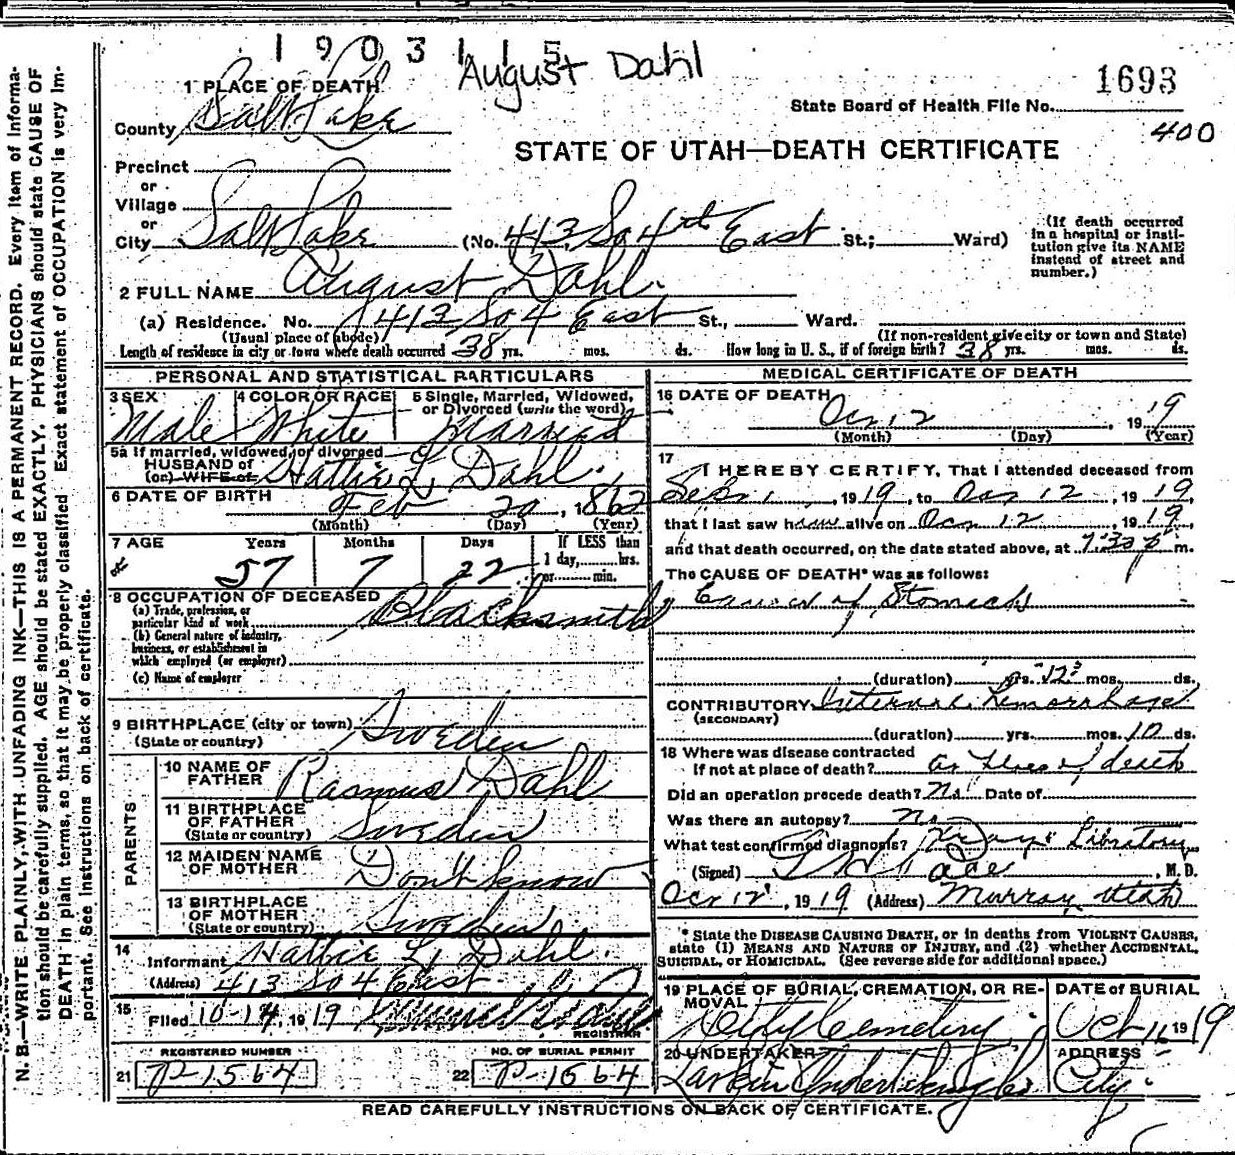 1903115
August Dahl
1693
State Board of Health File No.
400
STATE OF UTAH—DEATH CERTIFICATE
1 PLACE OF DEATH
County Salt Lake
Precinct
or
Village
or
City Salt Lake (No. 413 So 4th East St.; Ward)
(If death occurred in a hospital or institution give its NAME instead of street and number.)
2 FULL NAME August Dahl.
(a) Residence. No. 413 So 4 East St., Ward.
(Usual place of abode) (If non-resident give city or town and State)
Length of residence in city or town where death occurred 38 yrs. mos. ds. How long in U. S., if of foreign birth? 38 yrs. mos. ds.
PERSONAL AND STATISTICAL PARTICULARS
3 SEX 4 COLOR OR RACE 5 Single, Married, Widowed, or Divorced (write the word)
Male White Married
5a If married, widowed, or divorced
HUSBAND of
(or) WIFE of Hattie L. Dahl.
6 DATE OF BIRTH Feb 20, 1862
(Month) (Day) (Year)
7 AGE Years Months Days If LESS than
1 day, hrs.
or min.
57 7 22
8 OCCUPATION OF DECEASED
(a) Trade, profession, or
particular kind of work Blacksmith
(b) General nature of industry,
business, or establishment in
which employed (or employer)
(c) Name of employer
9 BIRTHPLACE (city or town)
(State or country) Sweden
PARENTS
10 NAME OF
FATHER Rasmus Dahl
11 BIRTHPLACE
OF FATHER
(State or country) Sweden
12 MAIDEN NAME
OF MOTHER Don't know
13 BIRTHPLACE
OF MOTHER
(State or country) Sweden
14
Informant Hattie L. Dahl.
(Address) 413 So 4 East
15
Filed 10-14, 1919
REGISTRAR
REGISTERED NUMBER NO. OF BURIAL PERMIT
21 P-1564 22 P-1564
MEDICAL CERTIFICATE OF DEATH
16 DATE OF DEATH
Oct 12 1919
(Month) (Day) (Year)
17
I HEREBY CERTIFY, That I attended deceased from
Sept 1, 1919, to Oct 12, 1919,
that I last saw him alive on Oct 12, 1919,
and that death occurred, on the date stated above, at 7:30 p m.
The CAUSE OF DEATH* was as follows:
Cancer of Stomach
(duration) yrs. 12 mos. ds.
CONTRIBUTORY Internal Hemorrhage
(SECONDARY)
(duration) yrs. mos. 10 ds.
18 Where was disease contracted
if not at place of death? at place of death
Did an operation precede death? No Date of
Was there an autopsy? No
What test confirmed diagnosis? X Rays
(Signed) M. D.
Oct 12, 1919 (Address) Murray Utah
* State the DISEASE CAUSING DEATH, or in deaths from VIOLENT CAUSES, state (1) MEANS AND NATURE OF INJURY, and (2) whether ACCIDENTAL, SUICIDAL, or HOMICIDAL. (See reverse side for additional space.)
19 PLACE OF BURIAL, CREMATION, OR REMOVAL
City Cemetery
DATE of BURIAL
Oct 16 1919
20 UNDERTAKER
Larkin Undertaking Co
ADDRESS
City.
READ CAREFULLY INSTRUCTIONS ON BACK OF CERTIFICATE.
N. B.—WRITE PLAINLY, WITH UNFADING INK—THIS IS A PERMANENT RECORD. Every item of information should be carefully supplied. AGE should be stated EXACTLY. PHYSICIANS should state CAUSE OF DEATH in plain terms, so that it may be properly classified. Exact statement of OCCUPATION is very important. See instructions on back of certificate.